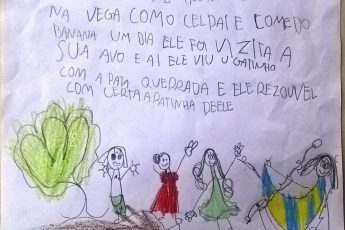 NA VEGA COMO CELPAI E COMEDO
BANANA UM DIA ELE FOI VIZITA A
SUA AVO E AI ELE VIU U GATINHO
COM A PATA QUEDRADA E ELE REZOUVEL
COM CERTA A PATINHA DEELE